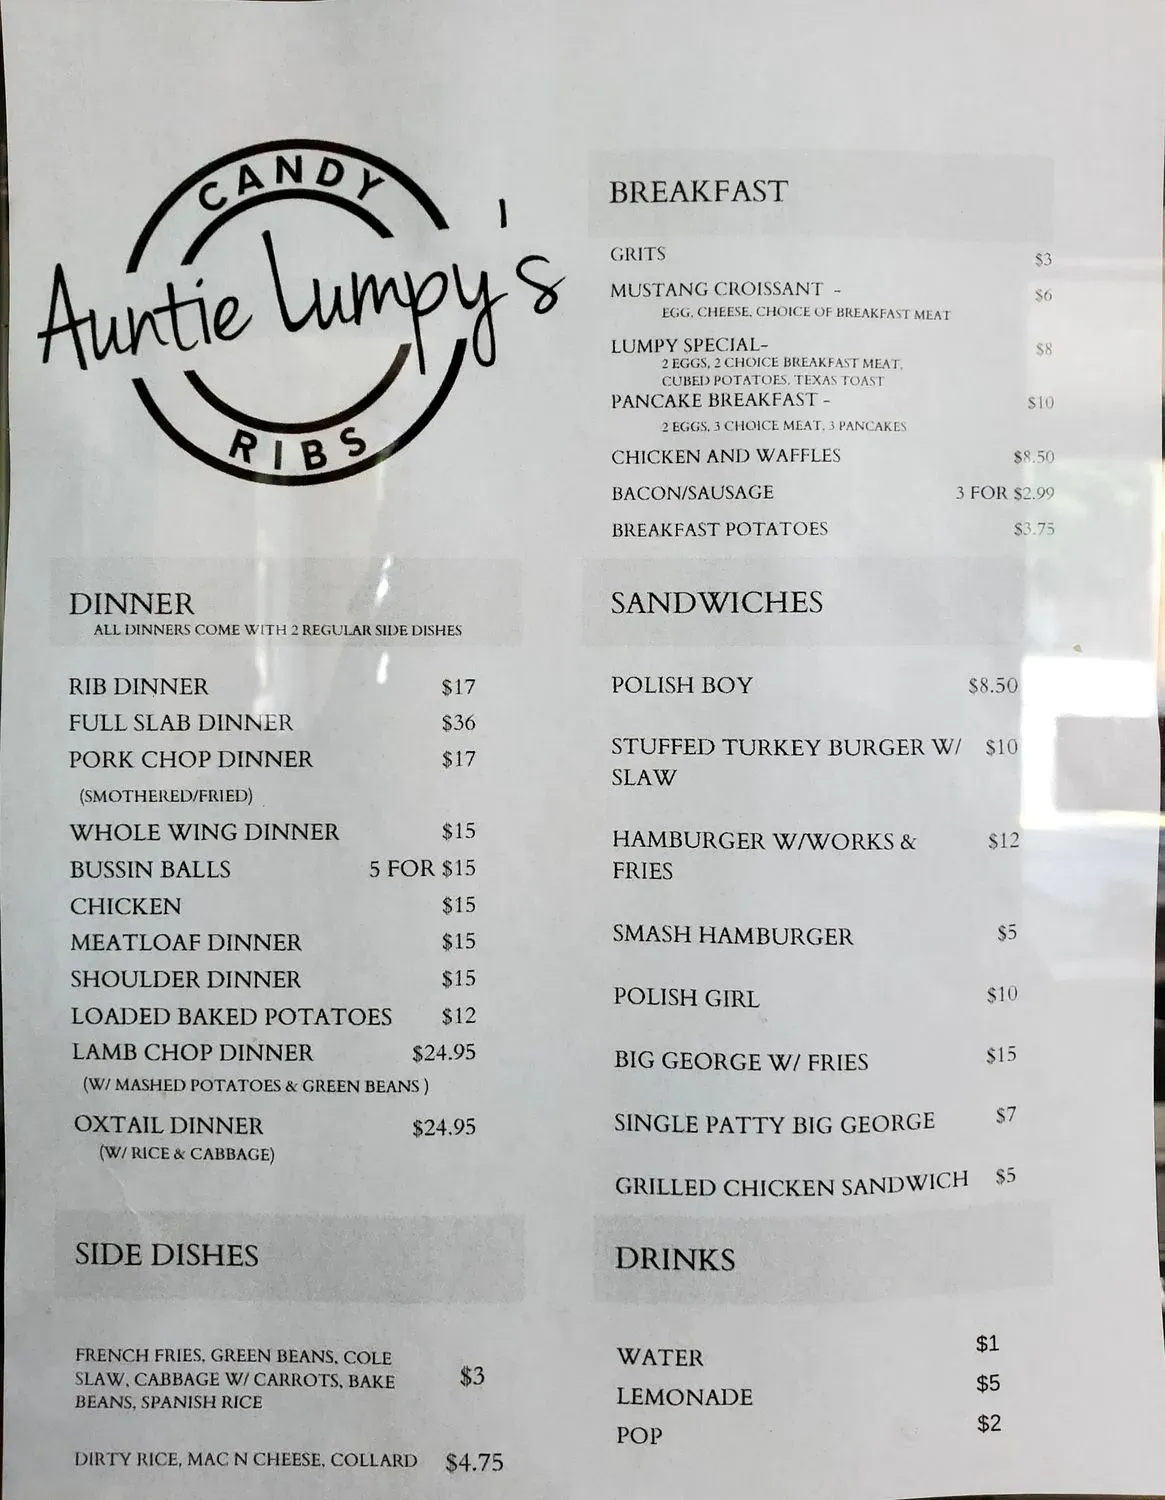 CANDY
Auntie Lumpy's
RIBS
BREAKFAST
GRITS $3
MUSTANG CROISSANT - $6
EGG, CHEESE, CHOICE OF BREAKFAST MEAT
LUMPY SPECIAL- $8
2 EGGS, 2 CHOICE BREAKFAST MEAT,
CUBED POTATOES, TEXAS TOAST
PANCAKE BREAKFAST - $10
2 EGGS, 3 CHOICE MEAT, 3 PANCAKES
CHICKEN AND WAFFLES $8.50
BACON/SAUSAGE 3 FOR $2.99
BREAKFAST POTATOES $3.75
DINNER
ALL DINNERS COME WITH 2 REGULAR SIDE DISHES
RIB DINNER $17
FULL SLAB DINNER $36
PORK CHOP DINNER $17
(SMOTHERED/FRIED)
WHOLE WING DINNER $15
BUSSIN BALLS 5 FOR $15
CHICKEN $15
MEATLOAF DINNER $15
SHOULDER DINNER $15
LOADED BAKED POTATOES $12
LAMB CHOP DINNER $24.95
(W/ MASHED POTATOES & GREEN BEANS )
OXTAIL DINNER $24.95
(W/ RICE & CABBAGE)
SANDWICHES
POLISH BOY $8.50
STUFFED TURKEY BURGER W/ $10
SLAW
HAMBURGER W/WORKS & $12
FRIES
SMASH HAMBURGER $5
POLISH GIRL $10
BIG GEORGE W/ FRIES $15
SINGLE PATTY BIG GEORGE $7
GRILLED CHICKEN SANDWICH $5
SIDE DISHES
FRENCH FRIES, GREEN BEANS, COLE
SLAW, CABBAGE W/ CARROTS, BAKE $3
BEANS, SPANISH RICE
DIRTY RICE, MAC N CHEESE, COLLARD $4.75
DRINKS
WATER $1
LEMONADE $5
POP $2